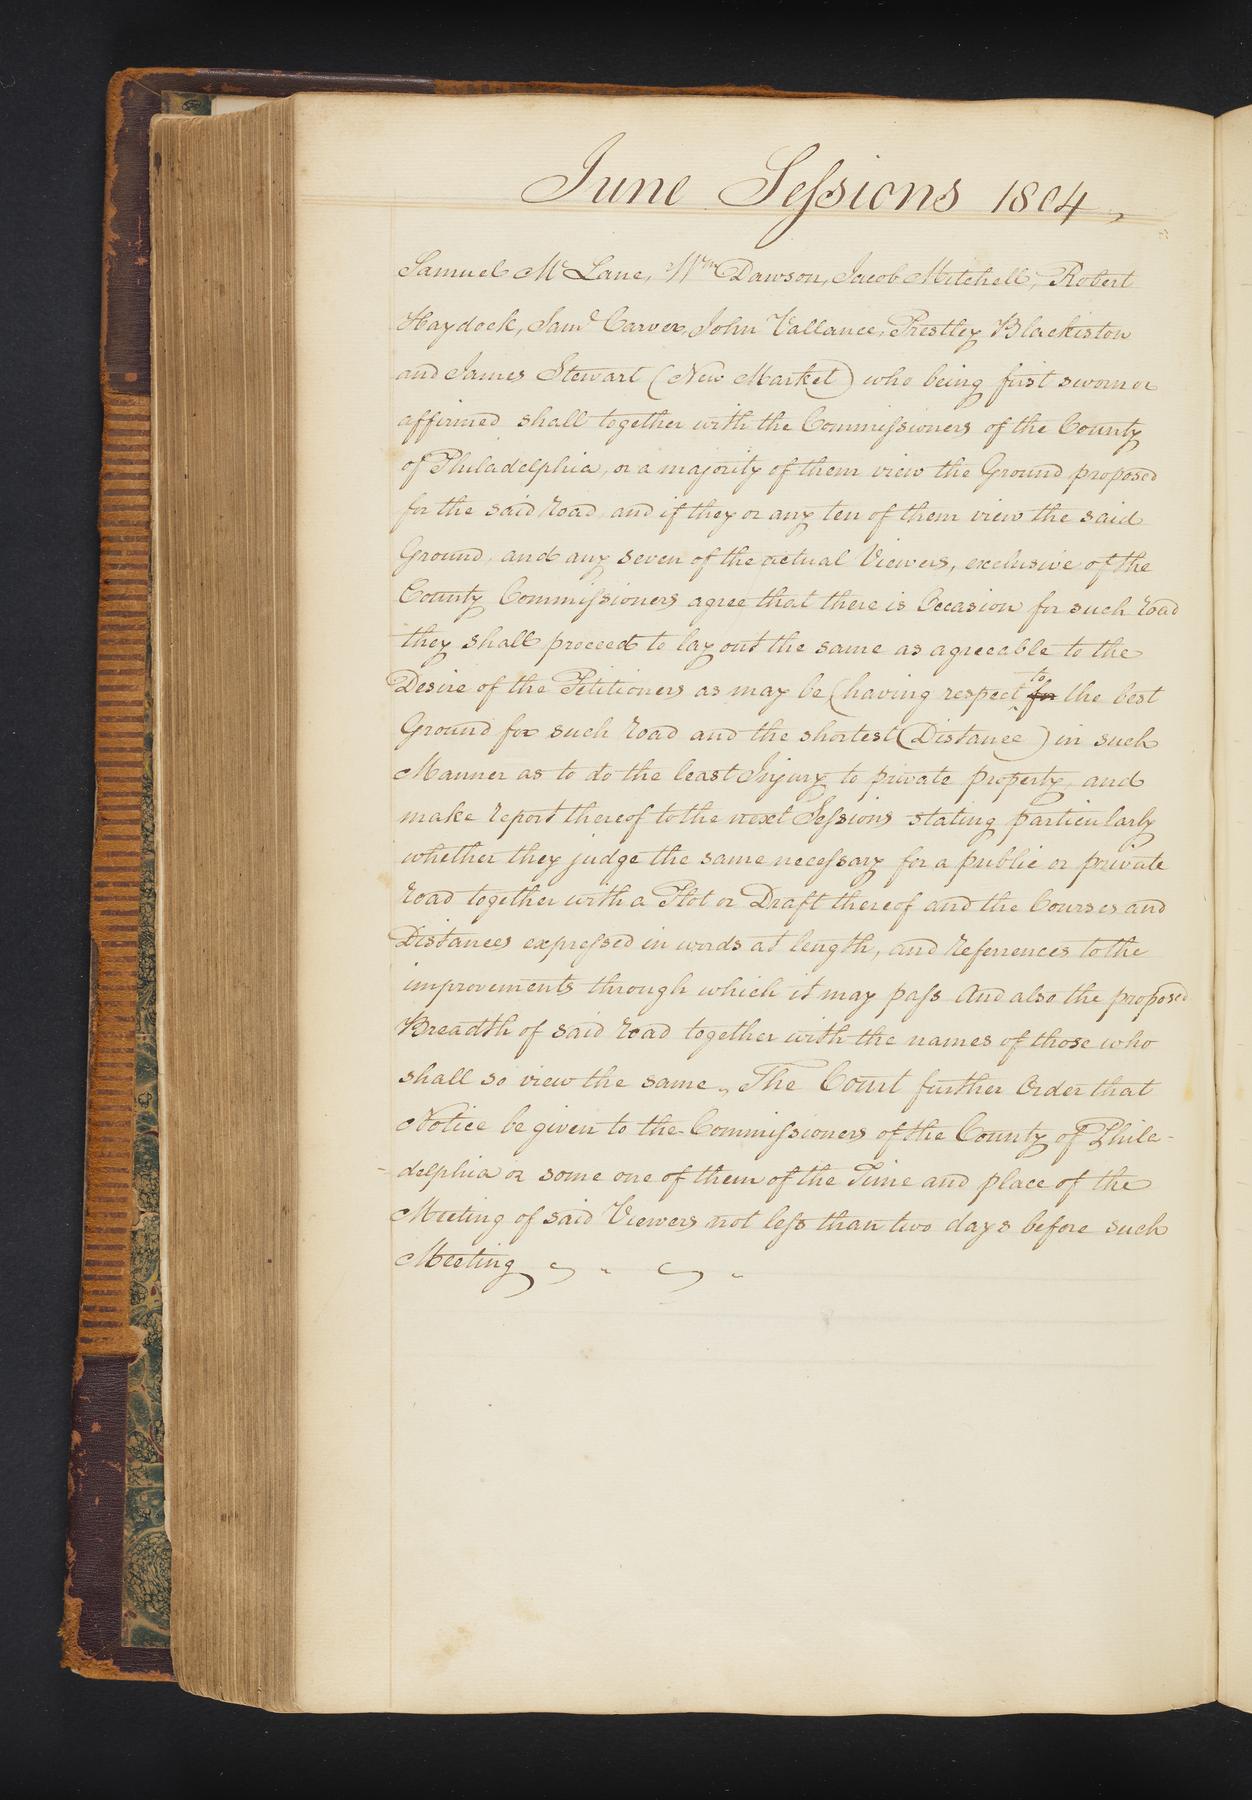 June Sessions 1804,
Samuel Mc Lane, Wm Dawson, Jacob Mitchell, Robert
Haydock, Saml Carver, John Vallance, Prestley Blackiston
and James Stewart (New Market) who being first sworn or
affirmed shall together with the Commissioners of the County
of Philadelphia, or a majority of them view the Ground proposed
for the said road, and if they or any ten of them view the said
Ground, and any seven of the actual Viewers, exclusive of the
County Commissioners agree that there is Occasion for such road
they shall proceed to lay out the same as agreeable to the
Desire of the Petitioners as may be (having respect to for the best
Ground for such road and the shortest Distance) in such
Manner as to do the least Injury to private property, and
make report thereof to the next Sessions stating particularly
whether they judge the same necessary for a public or private
road together with a Plot or Draft thereof and the Courses and
Distances expressed in words at length, and references to the
improvements through which it may pass And also the proposed
Breadth of said road together with the names of those who
shall so view the same, The Court further Order that
Notice be given to the Commissioners of the County of Phila-
-delphia or some one of them of the Time and place of the
Meeting of said Viewers not less than two days before such
Meeting